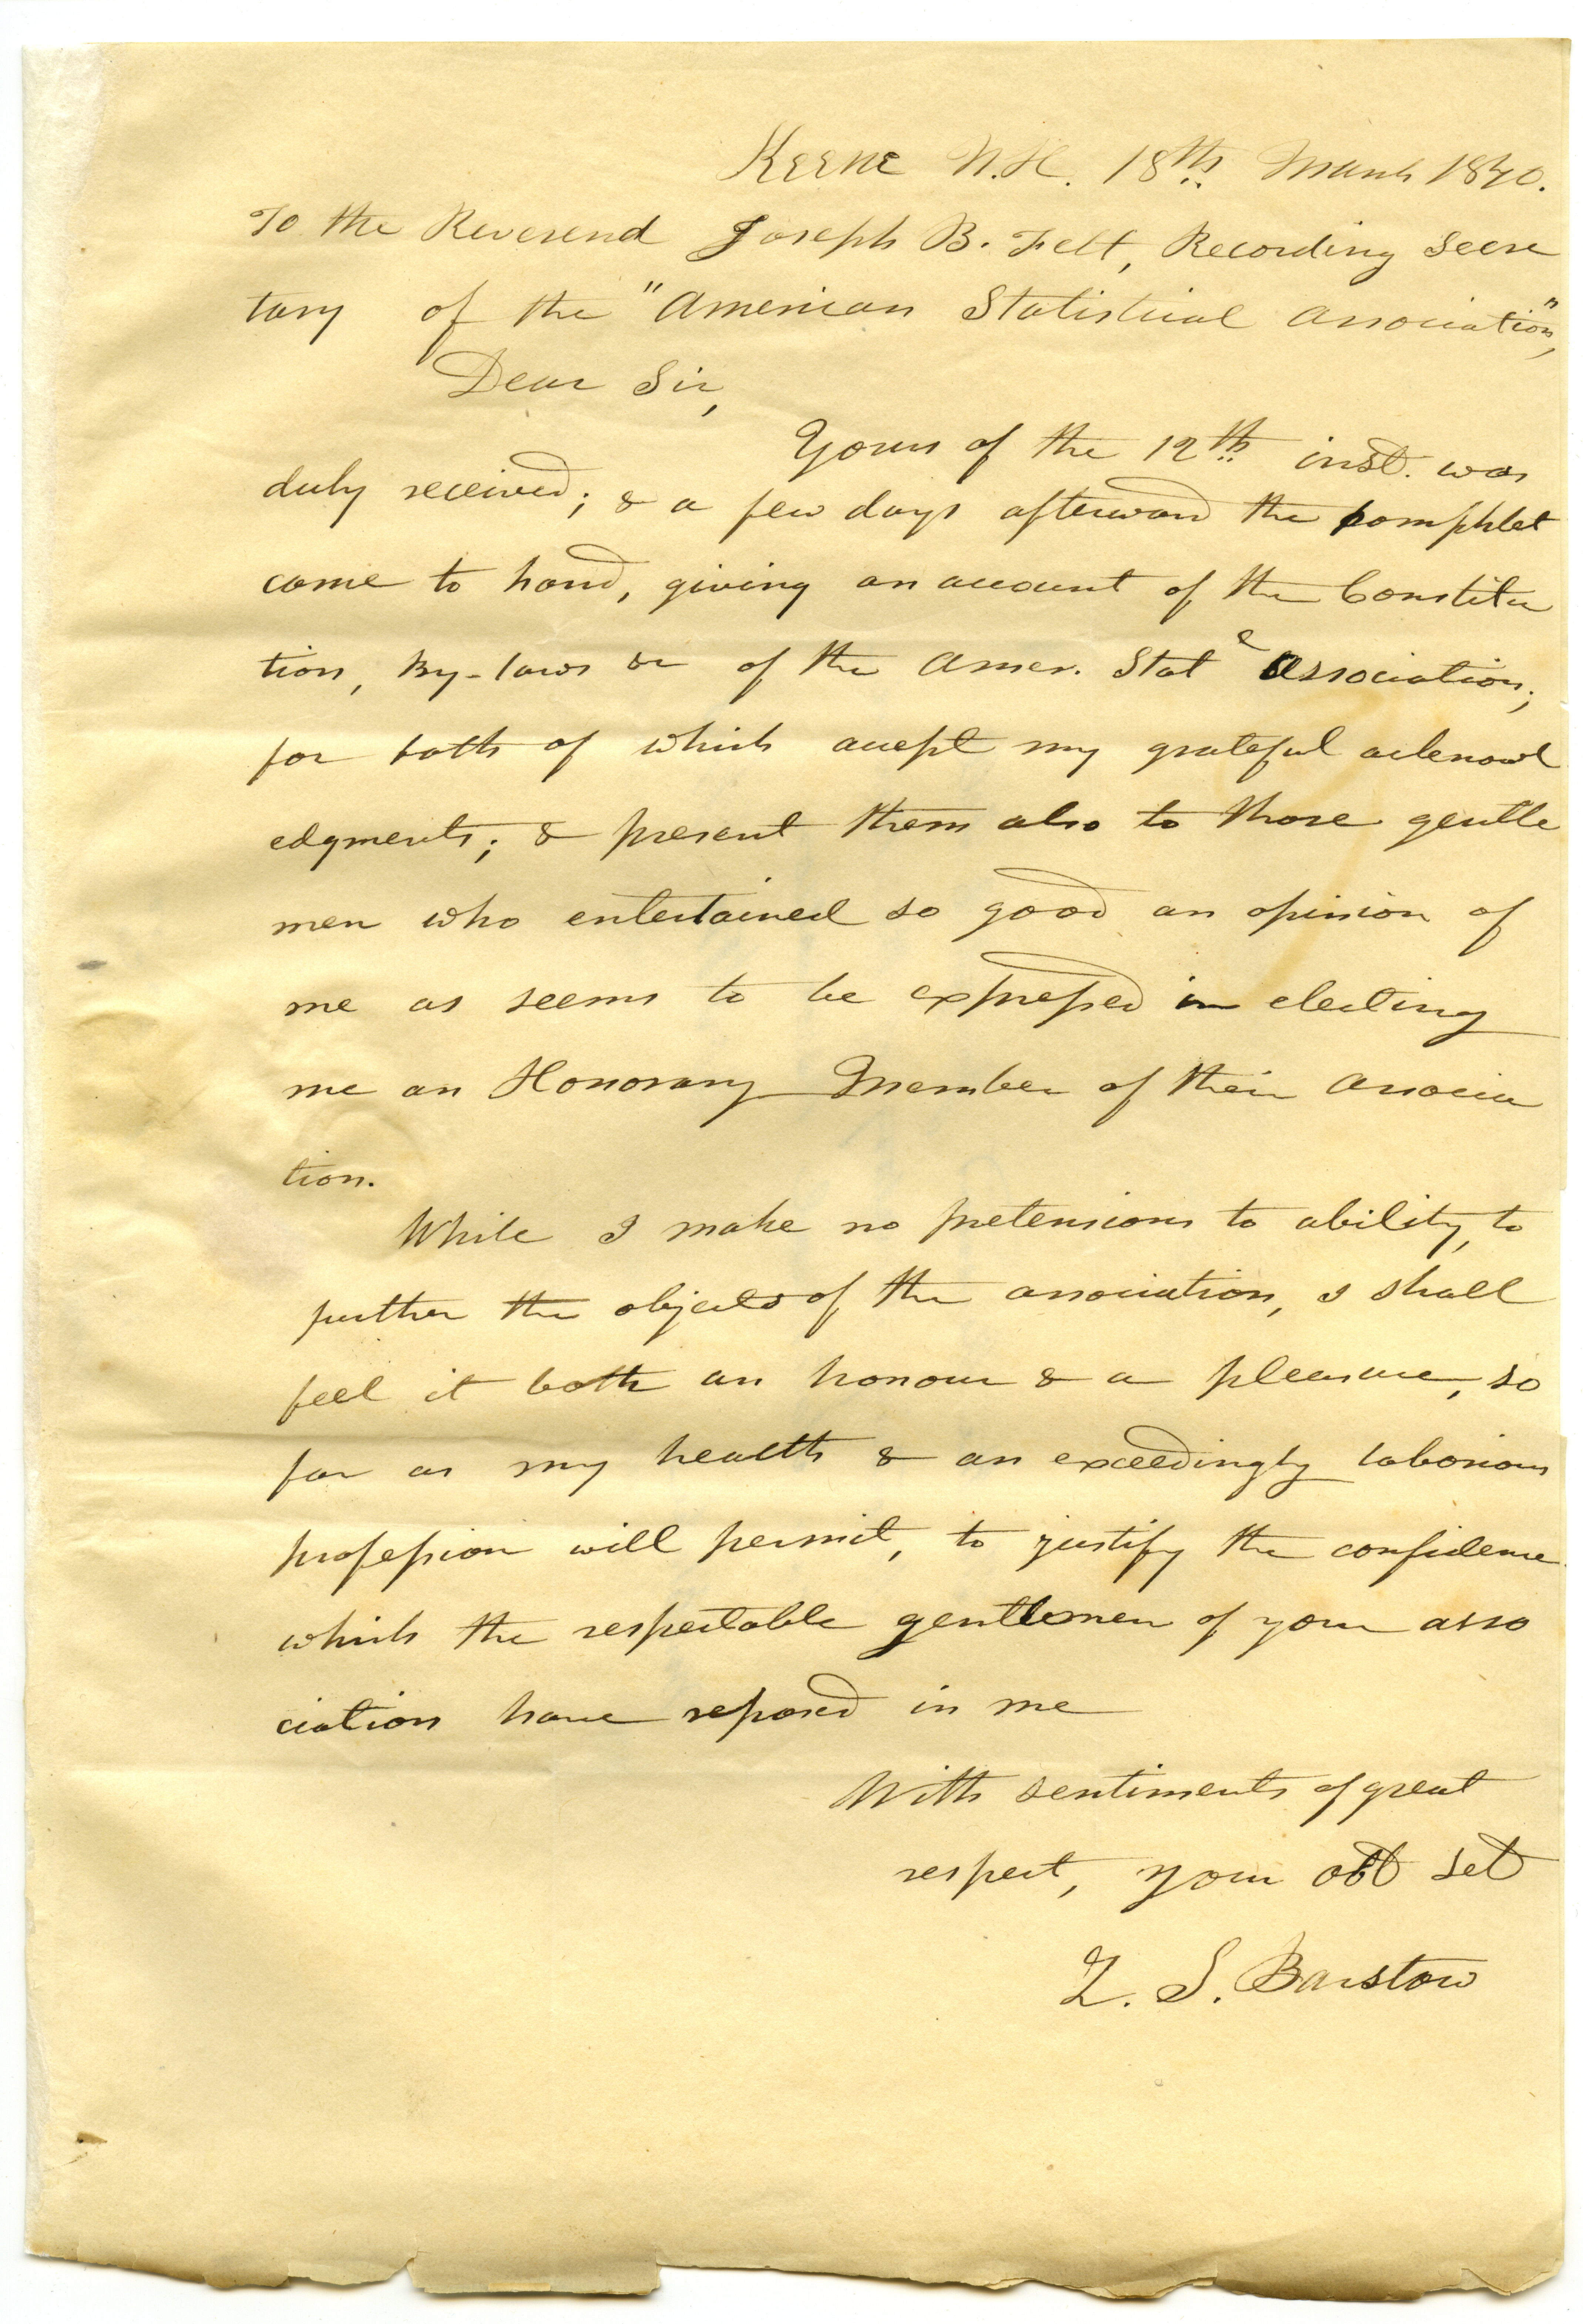 Keene N.H. 18th March 1840.
To the Reverend Joseph B. Felt, Recording Secre
tary of the "American Statistical Association",
Dear Sir,
Yours of the 12th inst. was
duly received; & a few days afterward the pamphlet
came to hand, giving an account of the Constitu
tion, By-laws &c of the Amer. Stat Association;
for both of which accept my grateful acknowl
edgments; & present them also to those gentle
men who entertained so good an opinion of
me as seems to be expressed in electing
me an Honorary Member of their Associa
tion.
While I make no pretensions to ability, to
further the objects of the association, I shall
feel it both an honour & a pleasure, so
far as my health & an exceedingly laborious
profession will permit, to justify the confidence
which the respectable gentlemen of your asso
ciation have reposed in me
With sentiments of great
respect, your obt set
Z. S. Barstow